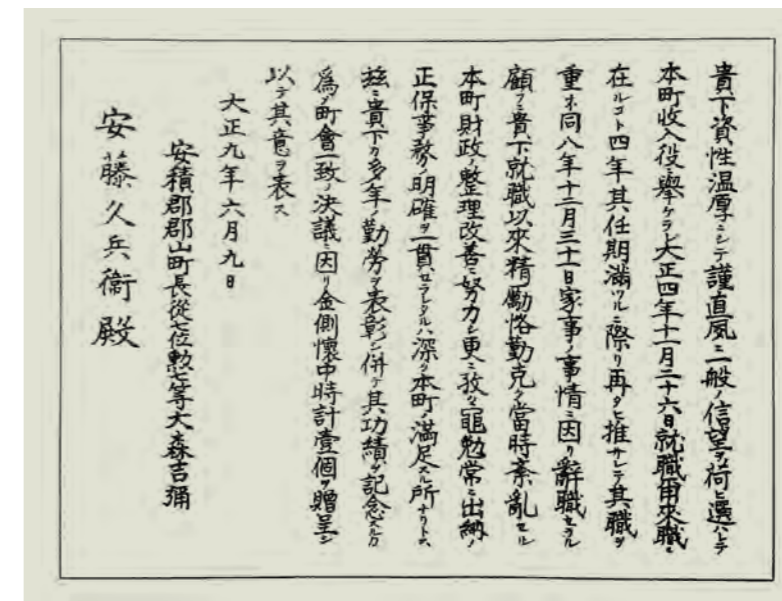 貴下資性温厚ニシテ謹直夙ニ一般ノ信望ヲ荷ヒ選ハレテ
本町收入役ニ擧ケラレ大正四年十一月二十六日就職爾來職ニ
在ルコト四年其任期滿ツルニ際リ再タヒ推サレテ其職ヲ
重ネ同八年十二月三十一日家事ノ事情ニ因リ辭職セラル
顧フニ貴下就職以來精勵恪勤克ク當時紊亂セル
本町財政ノ整理改善ニ努力シ更ニ孜々黽勉常ニ出納ノ
正保事務ノ明確ヲ一貫セラレタルハ深ク本町ノ滿足スル所ナリトス
玆ニ貴下カ多年ノ勤勞ヲ表彰シ併テ其功績ヲ記念スルカ
爲メ町會一致ノ決議ニ因リ金側懷中時計壹個ヲ贈呈シ
以テ其意ヲ表ス
大正九年六月九日
安積郡郡山町長從七位勲七等大森吉彌
安藤久兵衞殿